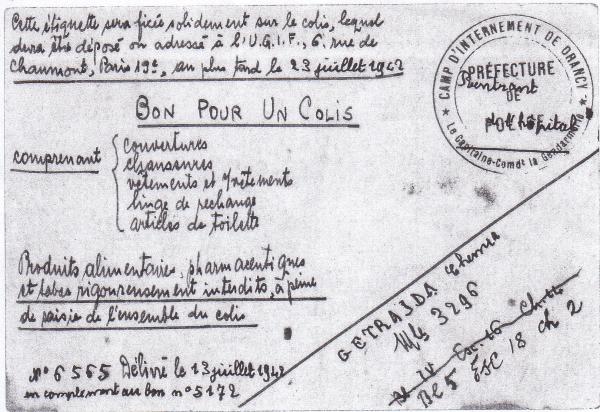 Cette étiquette sera ficée solidement sur le colis, lequel
devra être déposé ou adressé à l'U.G.I.F., 6, rue de
Chaumont, Paris 19e, au plus tard le 23 juillet 1942
BON POUR UN COLIS
comprenant
couvertures
chaussures
vêtements et s/vêtements
linge de rechange
articles de toilette
Produits alimentaires, pharmaceutiques
et tabac rigoureusement interdits, à peine
de saisie de l'ensemble du colis
n° 6565 Délivré le 13 juillet 1942
en complément au bon n° 5172
CAMP D'INTERNEMENT DE DRANCY
PRÉFECTURE
DE
POLICE
Le Capitaine-Comdt la Gendarmerie
Rentrant
de l'hôpital
GETRAJDA
Mle 3296
Esc. 16
BL 5 ESC 18 ch 2